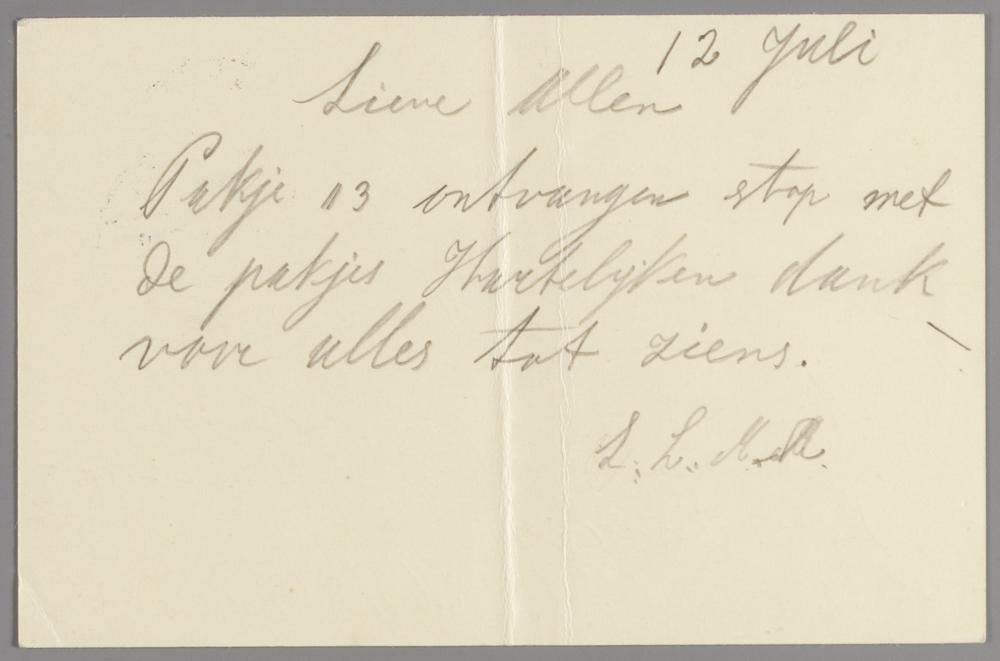 12 Juli
Lieve Allen
Pakje n3 ontvangen stop met
de pakjes Hartelijken dank
voor alles tot ziens.
L. L. M. R.